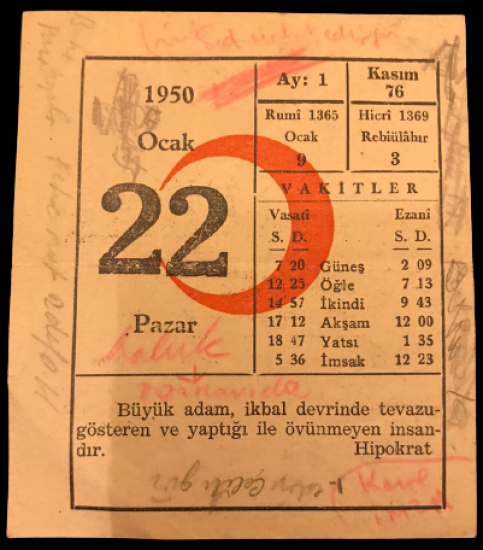 1950
Ocak
22
Pazar
Ay: 1
Kasım
76
Rumî 1365
Ocak
9
Hicrî 1369
Rebiülâhır
3
VAKİTLER
Vasatî Ezanî
S. D. S. D.
7 20 Güneş 2 09
12 25 Öğle 7 13
14 57 İkindi 9 43
17 12 Akşam 12 00
18 47 Yatsı 1 35
5 36 İmsak 12 23
haluk
Büyük adam, ikbal devrinde tevazu-
gösteren ve yaptığı ile övünmeyen insan-
dır. Hipokrat